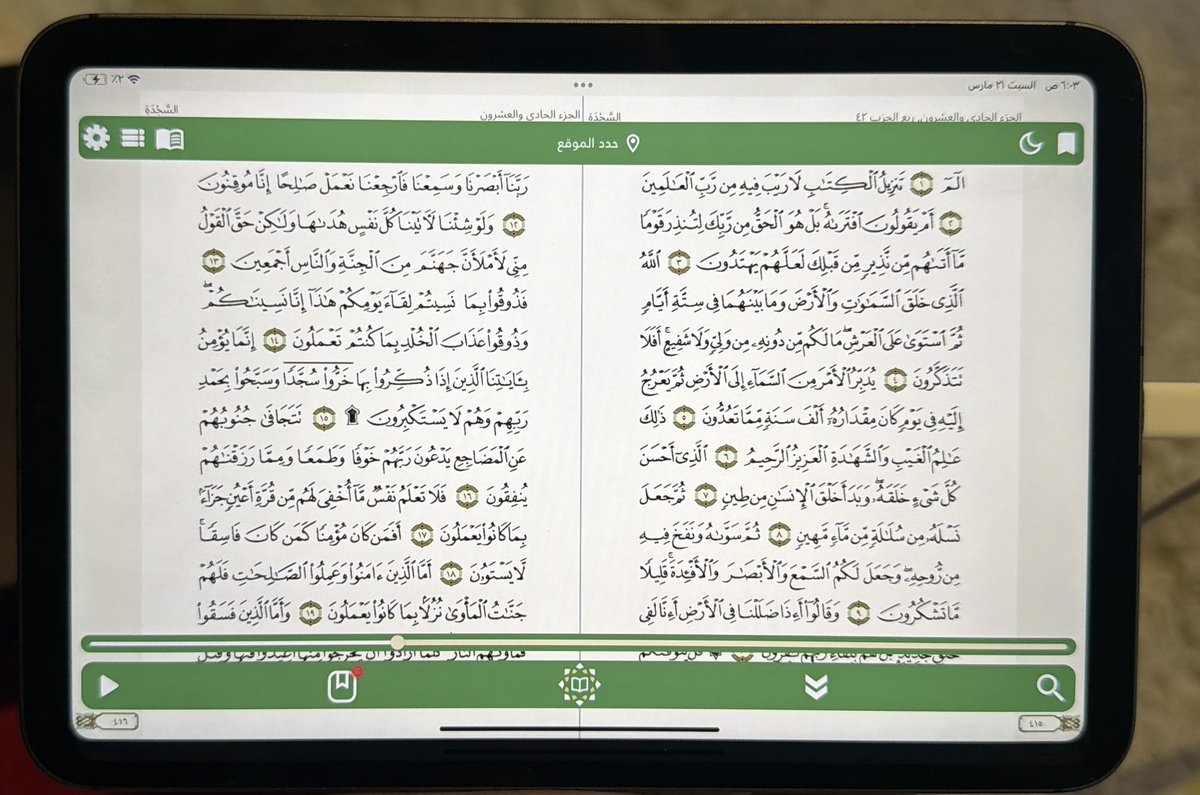 ٦:٠٣ ص السبت ٢١ مارس
٪٢
الجزء الحادي والعشرون, ربع الحزب ٤٢
السَّجْدَةِ
الجزء الحادي والعشرون
السَّجْدَةِ
حدد الموقع
الٓمٓ ١ تَنزِيلُ ٱلْكِتَٰبِ لَا رَيْبَ فِيهِ مِن رَّبِّ ٱلْعَٰلَمِينَ
٢ أَمْ يَقُولُونَ ٱفْتَرَىٰهُ ۚ بَلْ هُوَ ٱلْحَقُّ مِن رَّبِّكَ لِتُنذِرَ قَوْمًا
مَّآ أَتَىٰهُم مِّن نَّذِيرٍ مِّن قَبْلِكَ لَعَلَّهُمْ يَهْتَدُونَ ٣ ٱللَّهُ
ٱلَّذِى خَلَقَ ٱلسَّمَٰوَٰتِ وَٱلْأَرْضَ وَمَا بَيْنَهُمَا فِى سِتَّةِ أَيَّامٍ
ثُمَّ ٱسْتَوَىٰ عَلَى ٱلْعَرْشِ ۖ مَا لَكُم مِّن دُونِهِۦ مِن وَلِىٍّ وَلَا شَفِيعٍ ۚ أَفَلَا
تَتَذَكَّرُونَ ٤ يُدَبِّرُ ٱلْأَمْرَ مِنَ ٱلسَّمَآءِ إِلَى ٱلْأَرْضِ ثُمَّ يَعْرُجُ
إِلَيْهِ فِى يَوْمٍ كَانَ مِقْدَارُهُۥٓ أَلْفَ سَنَةٍ مِّمَّا تَعُدُّونَ ٥ ذَٰلِكَ
عَٰلِمُ ٱلْغَيْبِ وَٱلشَّهَٰدَةِ ٱلْعَزِيزُ ٱلرَّحِيمُ ٦ ٱلَّذِىٓ أَحْسَنَ
كُلَّ شَىْءٍ خَلَقَهُۥ ۖ وَبَدَأَ خَلْقَ ٱلْإِنسَٰنِ مِن طِينٍ ٧ ثُمَّ جَعَلَ
نَسْلَهُۥ مِن سُلَٰلَةٍ مِّن مَّآءٍ مَّهِينٍ ٨ ثُمَّ سَوَّىٰهُ وَنَفَخَ فِيهِ
مِن رُّوحِهِۦ ۖ وَجَعَلَ لَكُمُ ٱلسَّمْعَ وَٱلْأَبْصَٰرَ وَٱلْأَفْـِٔدَةَ ۚ قَلِيلًا
مَّا تَشْكُرُونَ ٩ وَقَالُوٓا۟ أَءِذَا ضَلَلْنَا فِى ٱلْأَرْضِ أَءِنَّا لَفِى
رَبَّنَآ أَبْصَرْنَا وَسَمِعْنَا فَٱرْجِعْنَا نَعْمَلْ صَٰلِحًا إِنَّا مُوقِنُونَ
١٢ وَلَوْ شِئْنَا لَءَاتَيْنَا كُلَّ نَفْسٍ هُدَىٰهَا وَلَٰكِنْ حَقَّ ٱلْقَوْلُ
مِنِّى لَأَمْلَأَنَّ جَهَنَّمَ مِنَ ٱلْجِنَّةِ وَٱلنَّاسِ أَجْمَعِينَ ١٣
فَذُوقُوا۟ بِمَا نَسِيتُمْ لِقَآءَ يَوْمِكُمْ هَٰذَآ إِنَّا نَسِينَٰكُمْ ۖ
وَذُوقُوا۟ عَذَابَ ٱلْخُلْدِ بِمَا كُنتُمْ تَعْمَلُونَ ١٤ إِنَّمَا يُؤْمِنُ
بِـَٔايَٰتِنَا ٱلَّذِينَ إِذَا ذُكِّرُوا۟ بِهَا خَرُّوا۟ سُجَّدًا وَسَبَّحُوا۟ بِحَمْدِ
رَبِّهِمْ وَهُمْ لَا يَسْتَكْبِرُونَ ۩ ١٥ تَتَجَافَىٰ جُنُوبُهُمْ
عَنِ ٱلْمَضَاجِعِ يَدْعُونَ رَبَّهُمْ خَوْفًا وَطَمَعًا وَمِمَّا رَزَقْنَٰهُمْ
يُنفِقُونَ ١٦ فَلَا تَعْلَمُ نَفْسٌ مَّآ أُخْفِىَ لَهُم مِّن قُرَّةِ أَعْيُنٍ جَزَآءًۢ
بِمَا كَانُوا۟ يَعْمَلُونَ ١٧ أَفَمَن كَانَ مُؤْمِنًا كَمَن كَانَ فَاسِقًا ۚ
لَّا يَسْتَوُۥنَ ١٨ أَمَّا ٱلَّذِينَ ءَامَنُوا۟ وَعَمِلُوا۟ ٱلصَّٰلِحَٰتِ فَلَهُمْ
جَنَّٰتُ ٱلْمَأْوَىٰ نُزُلًۢا بِمَا كَانُوا۟ يَعْمَلُونَ ١٩ وَأَمَّا ٱلَّذِينَ فَسَقُوا۟
٤١٥
٤١٦